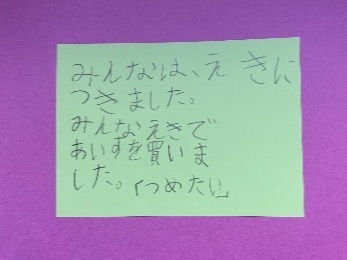 みんなは、え きに
つきました。
みんなえきで
あいすを買いま
した。「つめたい」